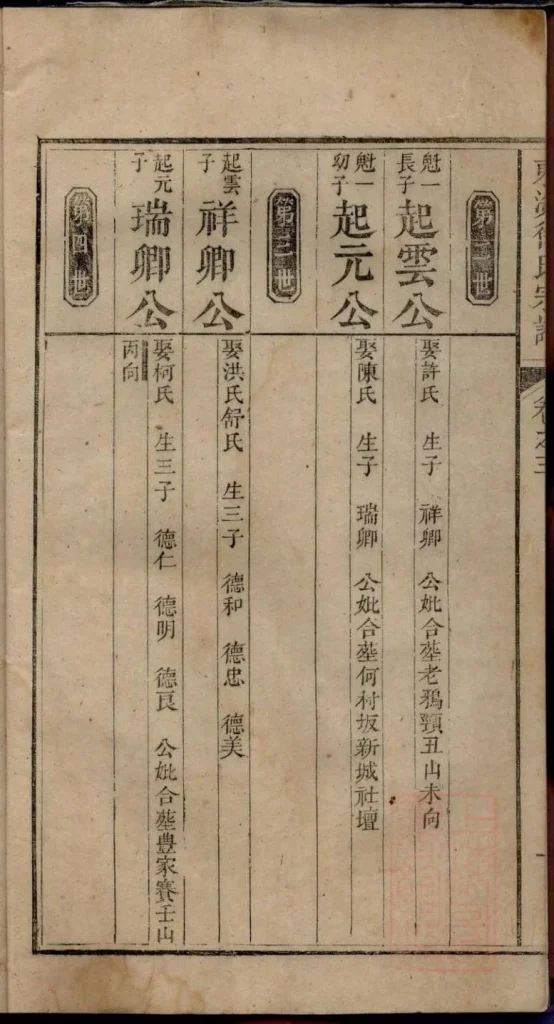 卷之三
第二世
魁一長子 起雲公 娶許氏 生子 祥卿 公妣合塟老鴉頸丑山未向
魁一幼子 起元公 娶陳氏 生子 瑞卿 公妣合塟何村坂新城社壇
第三世
起雲子 祥卿公 娶洪氏舒氏 生三子 德和 德忠 德美
起元子 瑞卿公 娶柯氏 生三子 德仁 德明 德良 公妣合塟豊家賽壬山
丙向
第四世